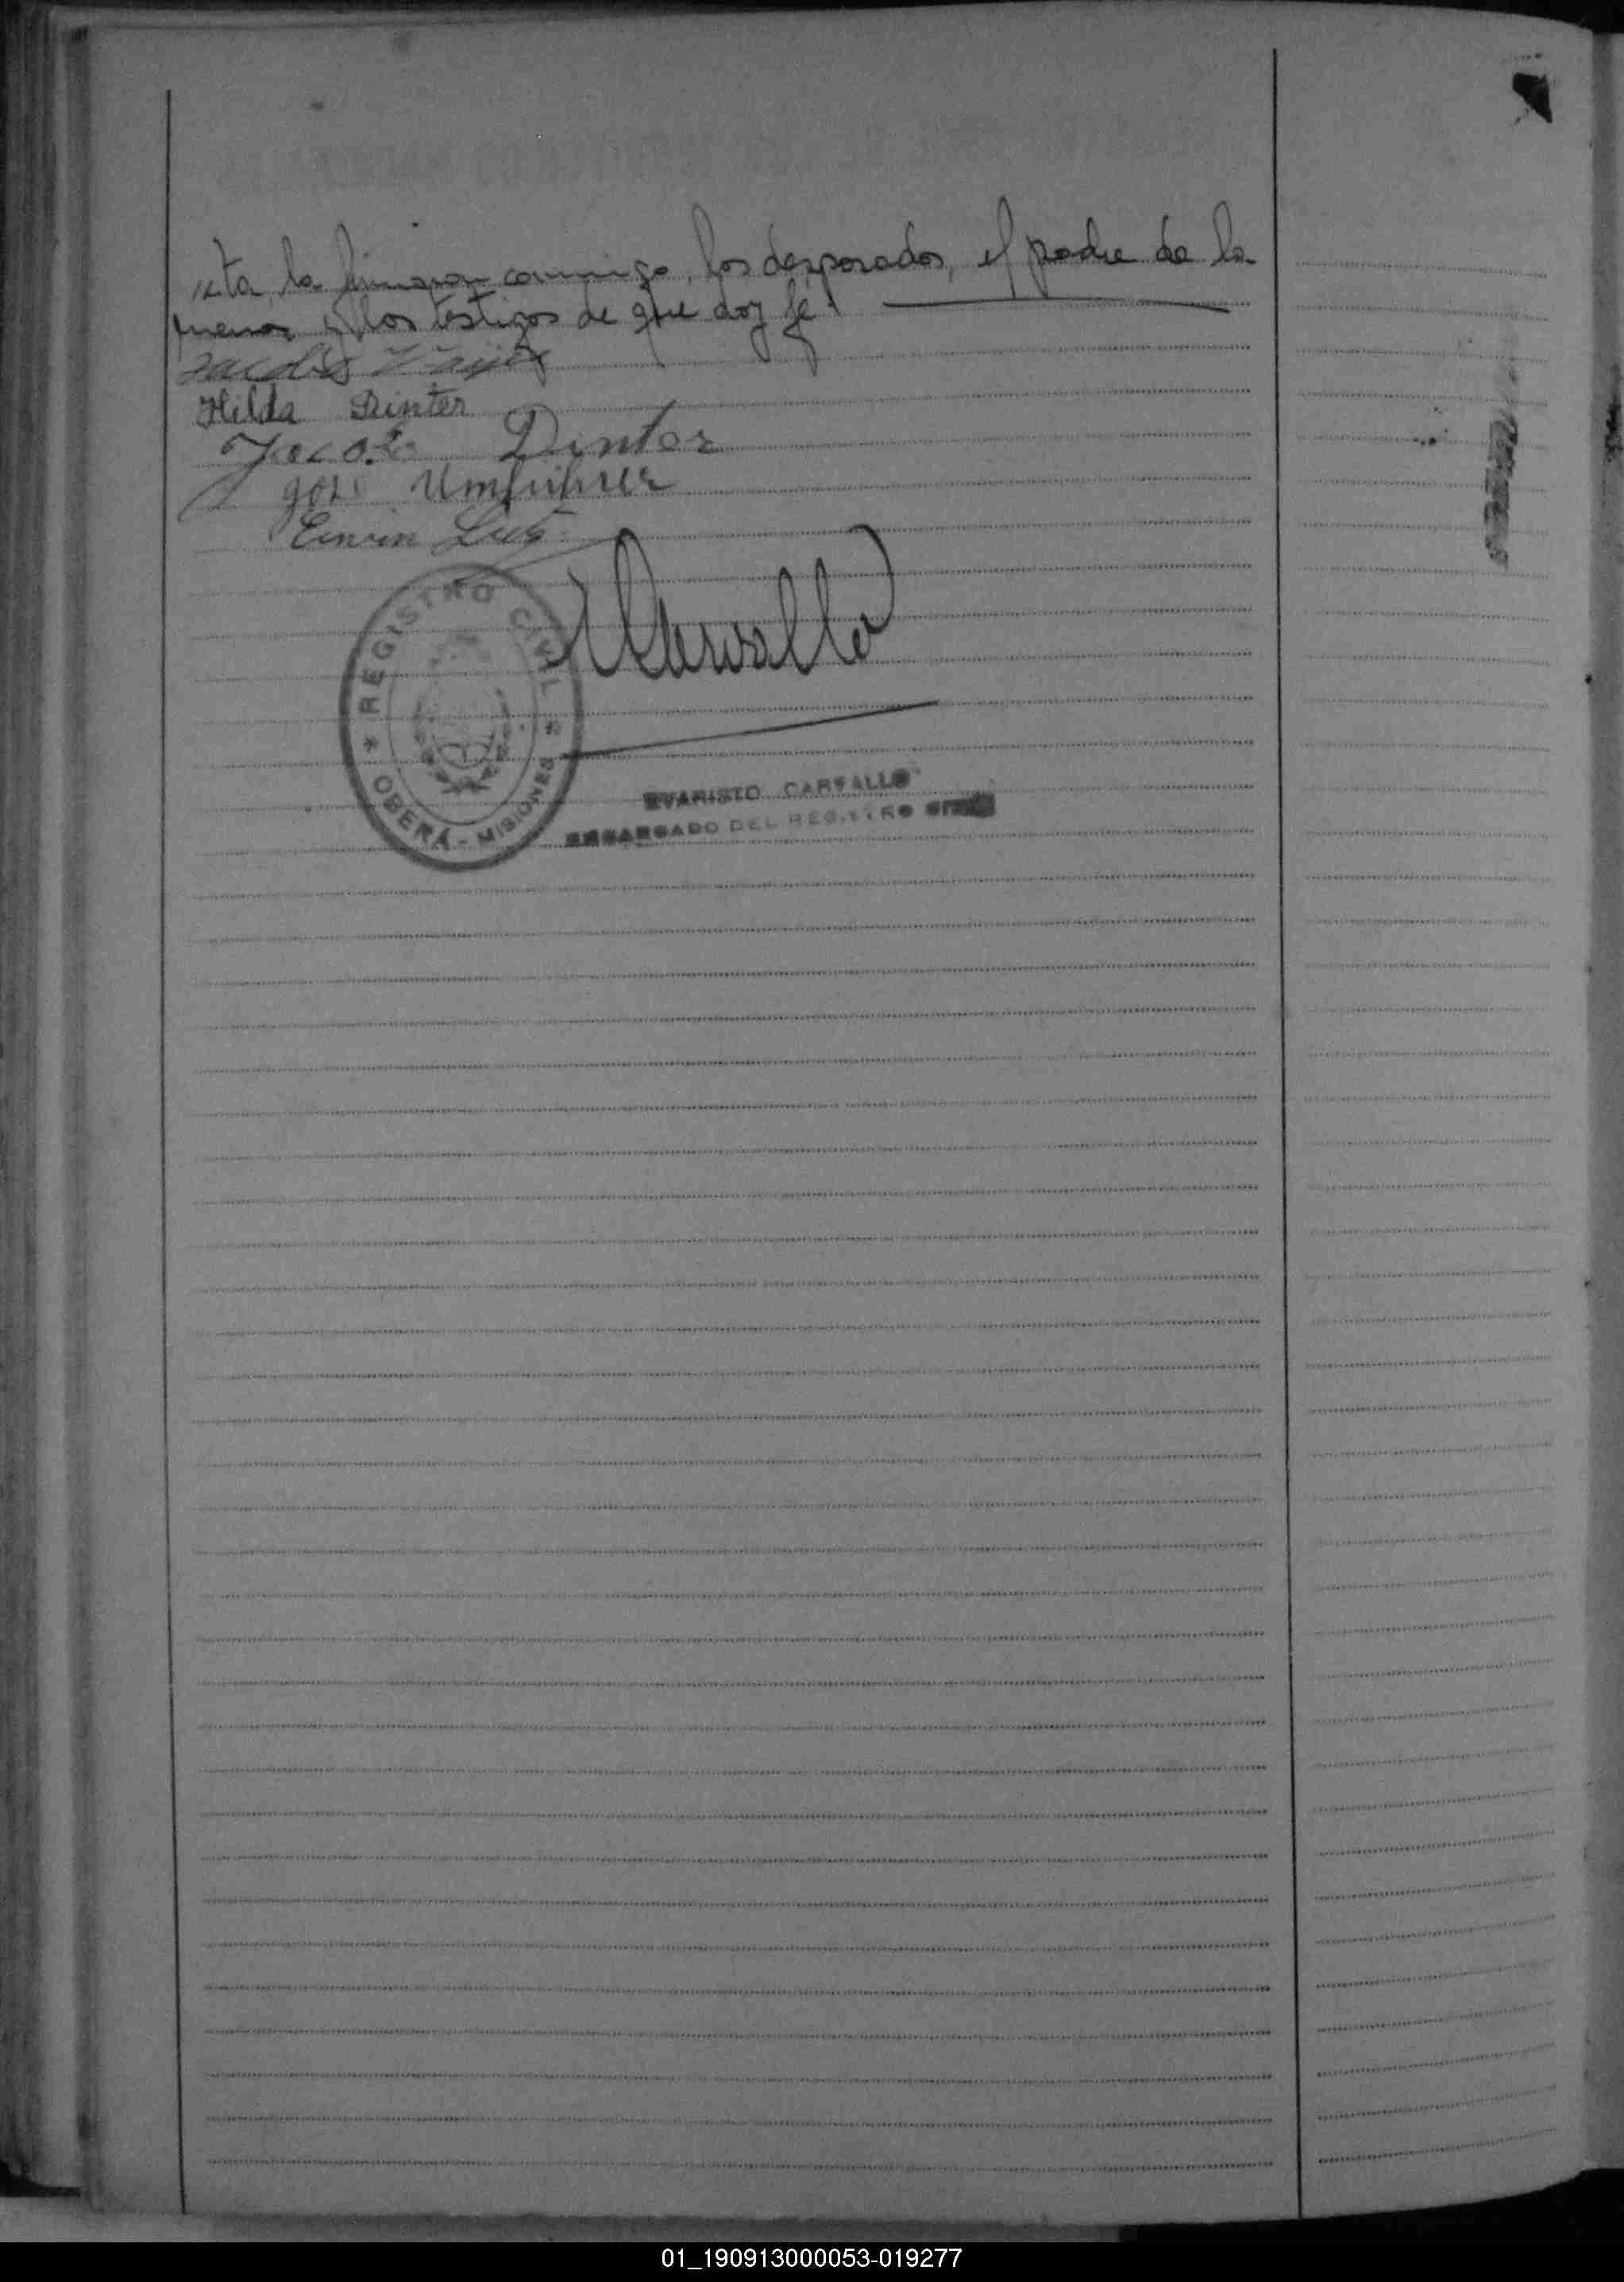 esta, la firmaron conmigo, los desposados, el padre de la
menor y los testigos de que doy fe.
Hilda Dinter
Jacobo Dinter
José Umfuhrer
Erwin Lutz
Carvallo
* REGISTRO CIVIL *
OBERÁ - MISIONES
EVARISTO CARVALLO
ENCARGADO DEL REGISTRO CIVIL
01_190913000053-019277